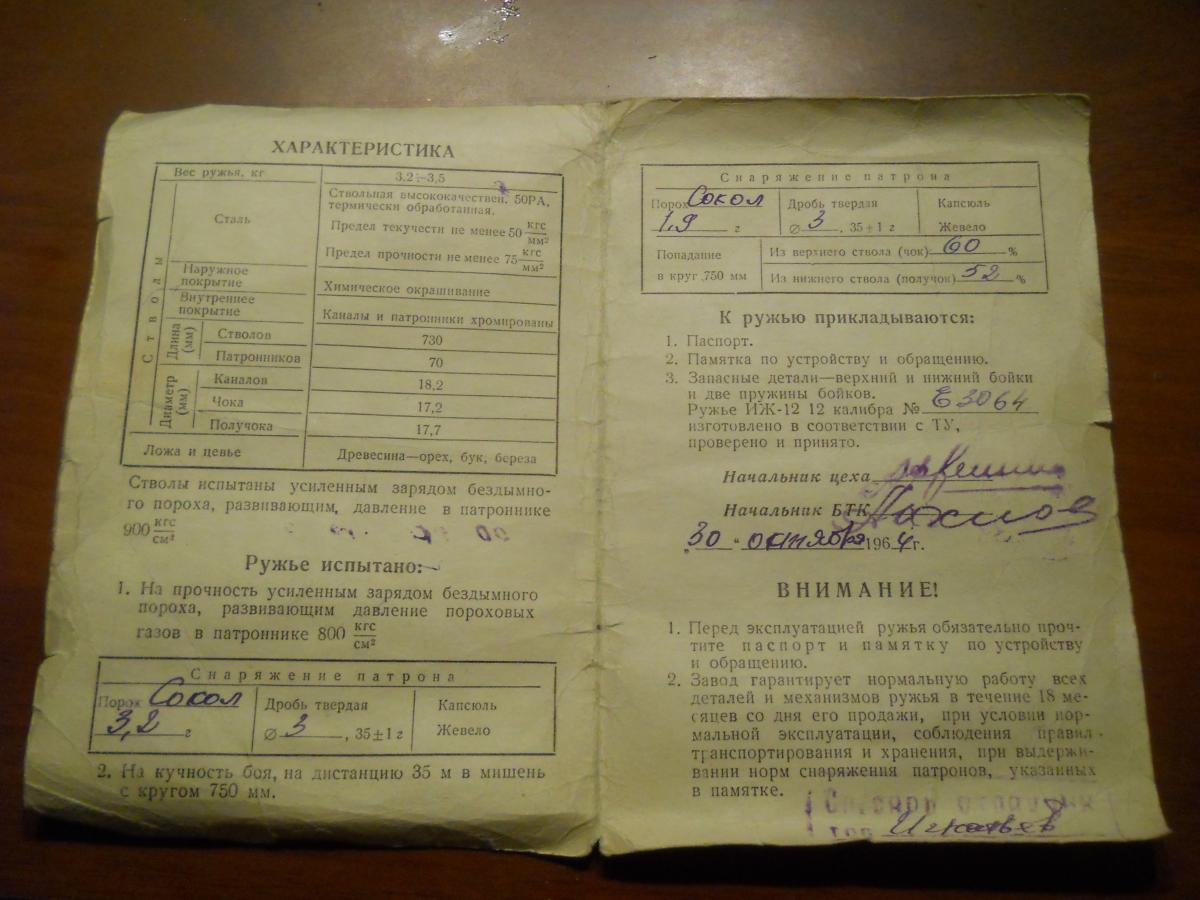 ХАРАКТЕРИСТИКА
Вес ружья, кг 3.2÷3,5
Стволы
Сталь
Ствольная высококачествен. 50РА,
термически обработанная.
Предел текучести не менее 50 кгс/мм²
Предел прочности не менее 75 кгс/мм²
Наружное
покрытие Химическое окрашивание
Внутреннее
покрытие Каналы и патронники хромированы
Длина (мм)
Стволов 730
Патронников 70
Диаметр (мм)
Каналов 18,2
Чока 17,2
Получока 17,7
Ложа и цевье Древесина—орех, бук, береза
Стволы испытаны усиленным зарядом бездымно-
го пороха, развивающим, давление в патроннике
900 кгс/см²
Ружье испытано:
1. На прочность усиленным зарядом бездымного
пороха, развивающим давление пороховых
газов в патроннике 800 кгс/см²
Снаряжение патрона
Порох Сокол Дробь твердая Капсюль
3,2 г ⌀ 3, 35±1 г Жевело
2. На кучность боя, на дистанцию 35 м в мишень
с кругом 750 мм.
Снаряжение патрона
Порох Сокол Дробь твердая Капсюль
1,9 г ⌀ 3, 35±1 г Жевело
Попадание
в круг 750 мм
Из верхнего ствола (чок) 60 %
Из нижнего ствола (получок) 52 %
К ружью прикладываются:
1. Паспорт.
2. Памятка по устройству и обращению.
3. Запасные детали—верхний и нижний бойки
и две пружины бойков.
Ружье ИЖ-12 12 калибра № Е3064
изготовлено в соответствии с ТУ,
проверено и принято.
Начальник цеха
Начальник БТК
„30“ октября 1964 г.
ВНИМАНИЕ!
1. Перед эксплуатацией ружья обязательно проч-
тите паспорт и памятку по устройству
и обращению.
2. Завод гарантирует нормальную работу всех
деталей и механизмов ружья в течение 18 ме-
сяцев со дня его продажи, при условии нор-
мальной эксплуатации, соблюдения правил
транспортирования и хранения, при выдержи-
вании норм снаряжения патронов, указанных
в памятке.
Игнатьев